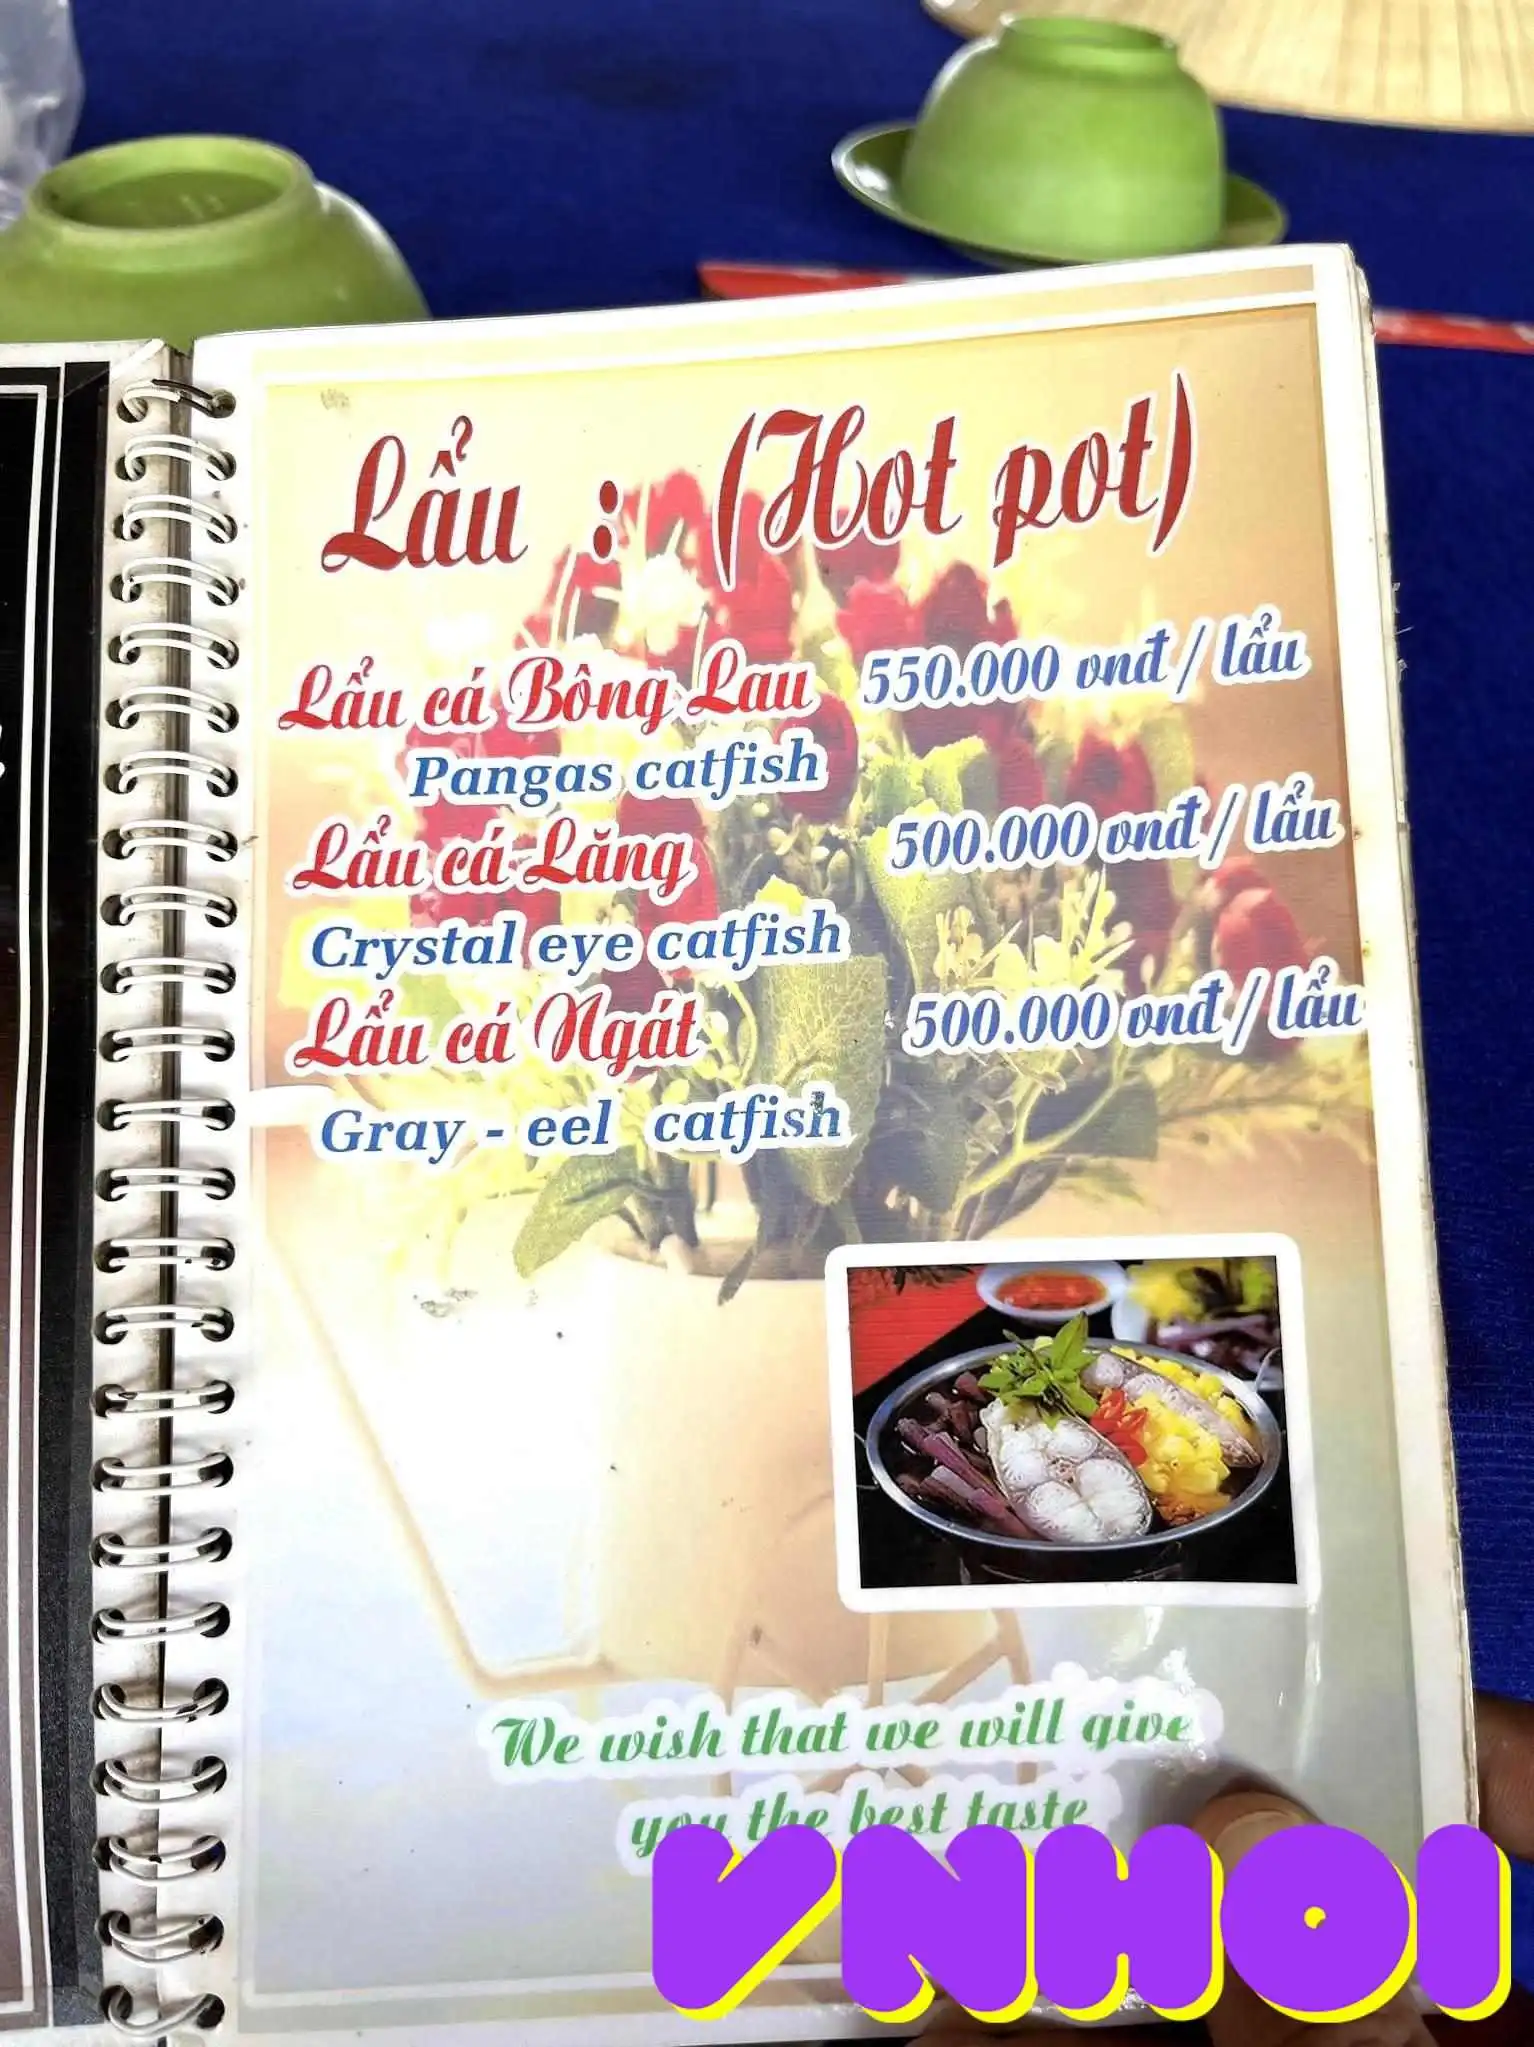 Lẩu : (Hot pot)
Lẩu cá Bông Lau 550.000 vnđ / lẩu
Pangas catfish
Lẩu cá Lăng 500.000 vnđ / lẩu
Crystal eye catfish
Lẩu cá Ngát 500.000 vnđ / lẩu
Gray - eel catfish
We wish that we will give
you the best taste
VNHOI